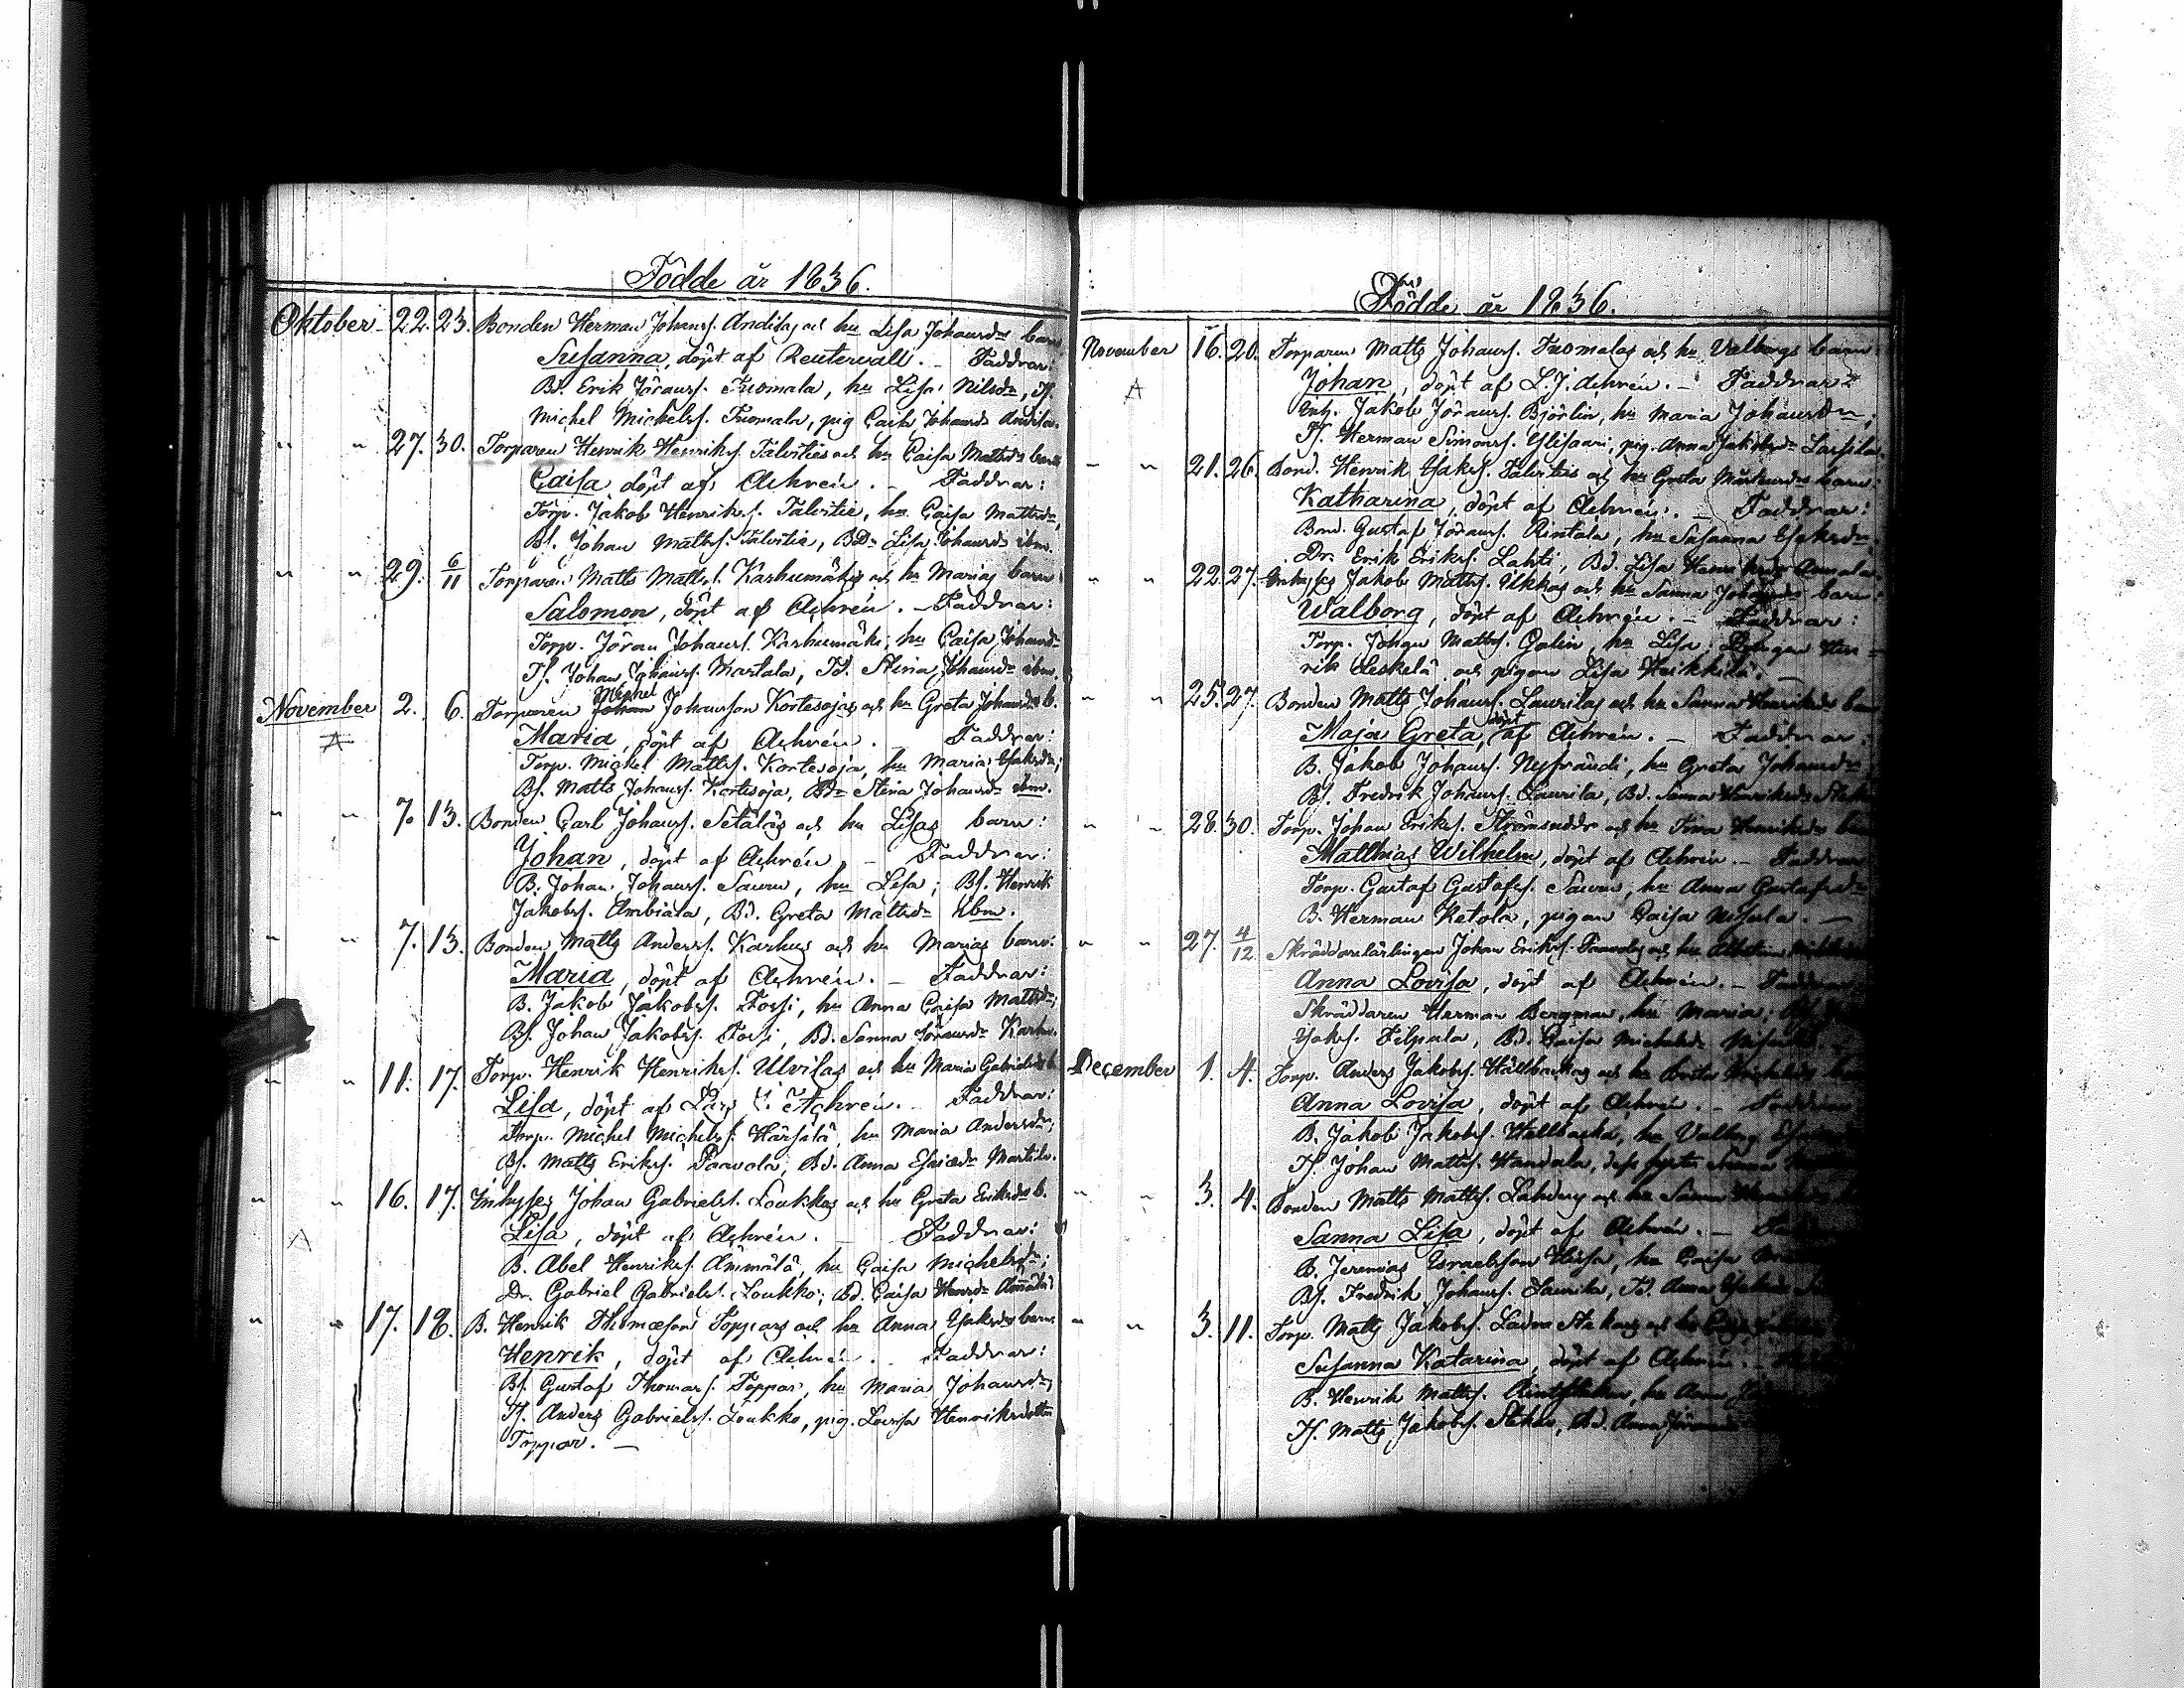 Födde år 1836.
Oktober 22. 23. Bonden Herman Johanss. Andilas och hu Lisa Johansdr barn
Susanna, döpt af Reuterwall. – Faddrar:
Bd. Erik Jöranss. Tuomala, hu Lisa Nilsdr, Ts.
Michel Michelss. Tuomala, pig Caisa Johansd. Andila.
" " 27. 30. Torparen Henrik Henrikss. Talvities och hu Caisa Mattsdr barn
Caisa döpt af Achrén. – Faddrar:
Torp. Jakob Henrikss. Talvitie, hu Caisa Mattsdr,
Bs. Johan Mattss. Talvitie, Bdr Lisa Johansdr ibm.
" " 29. 6/11 Torparen Matts Mattss. Karhumäkis och hu Marias barn
Salomon, döpt af Achrén. – Faddrar:
Torp. Jöran Johanss. Karhumäki, hu Caisa Johansdr
Ts. Johan Johanss. Martala, Td. Stina Johansdr ibm.
November 2. 6. Torparen Michel Johansson Kortesojas och hu Greta Johansdr b.
A
Maria, döpt af Achrén. Faddrar:
Torp. Michel Mattss. Kortesoja, hu Maria Isaksdr;
Bs. Matts Johanss. Kortesoja, Bdr Stina Johansdr ibm.
" " 7. 13. Bonden Carl Johanss. Setäläs och hu Lisas barn:
Johan, döpt af Achrén. – Faddrar:
B. Johan Johanss. Sauru, hu Lisa; Bs. Henrik
Jakobss. Ambiala, Bd. Greta Mattsdr ibm.
" " 7. 13. Bonden Matts Anderss. Karhus och hu Marias barn:
Maria, döpt af Achrén. – Faddrar:
B. Jakob Jakobss. Fossi, hu Anna Caisa Mattsdr;
Bs. Johan Jakobss. Fossi, Bd. Sanna Jöransdr Karhu.
" " 11. 17. Torp. Henrik Henrikss. Ulvilas och hu Maria Gabrielsdr b.
Lisa, döpt af Lars J. Achrén. Faddrar:
Torp. Michel Michelss. Härsilä, hu Maria Andersdr;
Bs. Matts Erikss. Paavola, Bd. Anna Esaiædr Martila.
" " 16. 17. Inhyses Johan Gabrielss. Loukkos och hu Greta Eriksdr b.
A
Lisa, döpt af Achrén. – Faddrar:
B. Abel Henrikss. Ämmälä, hu Caisa Michelsdr;
Dr. Gabriel Gabrielss. Loukko; Bd. Caisa Henrdr Ämmälä:
" " 17. 18. B. Henrik Thomæson Toppars och hu Anna Isaksdr barn
Henrik, döpt af Achrén. Faddrar:
Bs. Gustaf Thomass. Toppar, hu Maria Johansdr;
Ts. Anders Gabrielss. Loukko, pig. Lovisa Henriksdotter
Toppar. –
Födde år 1836.
November 16. 20. Torparen Matts Johanss. Tuomalas och hu Valborgs barn
A
Johan, döpt af L. J. Achrén. – Faddrar:
Inh. Jakob Jöranss. Björlin, hu Maria Johansdr;
Ts. Herman Simonss. Ylisaari, pig. Anna Jakobsdr Lassila.
" " 21. 26. Bond. Henrik Isakss. Talvities och hu Greta Mårtensdr barn:
Katharina, döpt af Achrén. – Faddrar:
Bond. Gustaf Jöranss. Rintala, hu Susanna Isaksdr;
Dr. Erik Erikss. Lahti, Bd. Lisa Annala.
" " 22. 27. Inhyses Jakob Mattss. Ukkos och hu Sanna barn:
Walborg, döpt af Achrén. – Faddrar:
Torp. Johan Mattss. Galin, hu Lisa; Drängen Hen-
rik Leskelä och pigan Lisa Heikkilä. –
" " 25. 27. Bonden Matts Johanss. Laurilas och hu Sanna Henriksdr barn
Maja Greta, döpt af Achrén. – Faddrar:
B. Jakob Johanss. Nyfrändi, hu Greta Johansdr
Bs. Fredrik Johanss. Laurila, Bd. Sanna Henriksdr
" " 28. 30. Torp. Johan Erikss. Strömsudds och hu Henriksdr
Matthias Wilhelm, döpt af Achrén. – Faddrar
Torp. Gustaf Gustafss. Sauru, hu Anna Gustafsdr
B. Herman Ketola, pigan Caisa Nisula. –
" " 27. 4/12 Skräddarelärlingen Johan Erikss. Paavolas och hu
Anna Lovisa, döpt af Achrén. – Faddrar
Skräddaren Herman Bergman, hu Maria;
Isakss. Filpula, Bd. Caisa Michelsdr
December 1. 4. Torp. Anders Jakobss. Hällbackas och hu
Anna Lovisa, döpt af Achrén. –
B. Jakob Jakobss. Hällbacka, hu Valborg
Ts. Johan Mattss. Handala,
" " 3. 4. Bonden Matts Mattss. och hu Sanna
Sanna Lisa, döpt af Achrén. –
B. Jeremias Israelsson hu Caisa
Bs. Fredrik Johanss. Laurila, Td. Anna
" " 3. 11. Torp. Matts Jakobss. och hu
Susanna Katarina, döpt af Achrén.
B. Henrik Mattss. hu Anna
Ts. Matts Jakobss. Bd. Anna